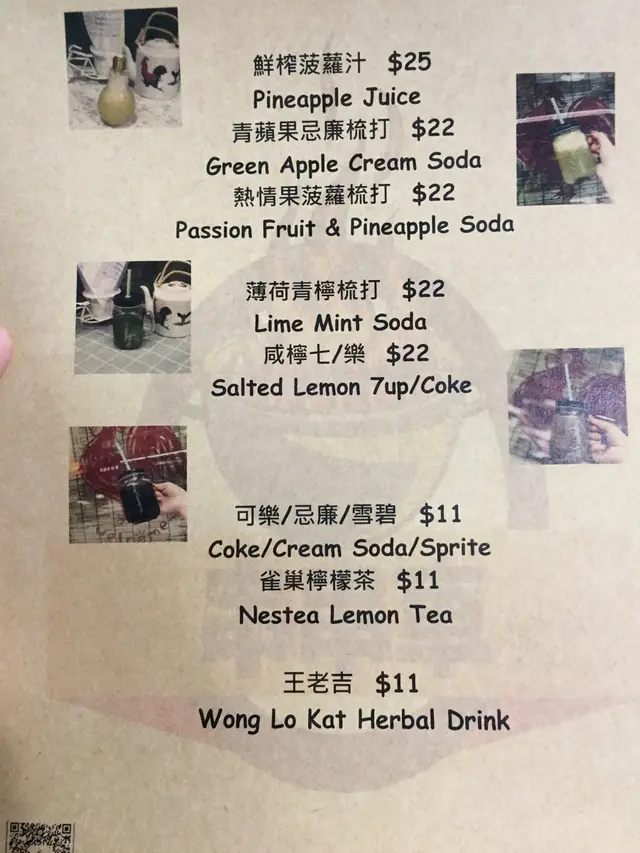 鮮榨菠蘿汁 $25
Pineapple Juice
青蘋果忌廉梳打 $22
Green Apple Cream Soda
熱情果菠蘿梳打 $22
Passion Fruit & Pineapple Soda
薄荷青檸梳打 $22
Lime Mint Soda
咸檸七/樂 $22
Salted Lemon 7up/Coke
可樂/忌廉/雪碧 $11
Coke/Cream Soda/Sprite
雀巢檸檬茶 $11
Nestea Lemon Tea
王老吉 $11
Wong Lo Kat Herbal Drink